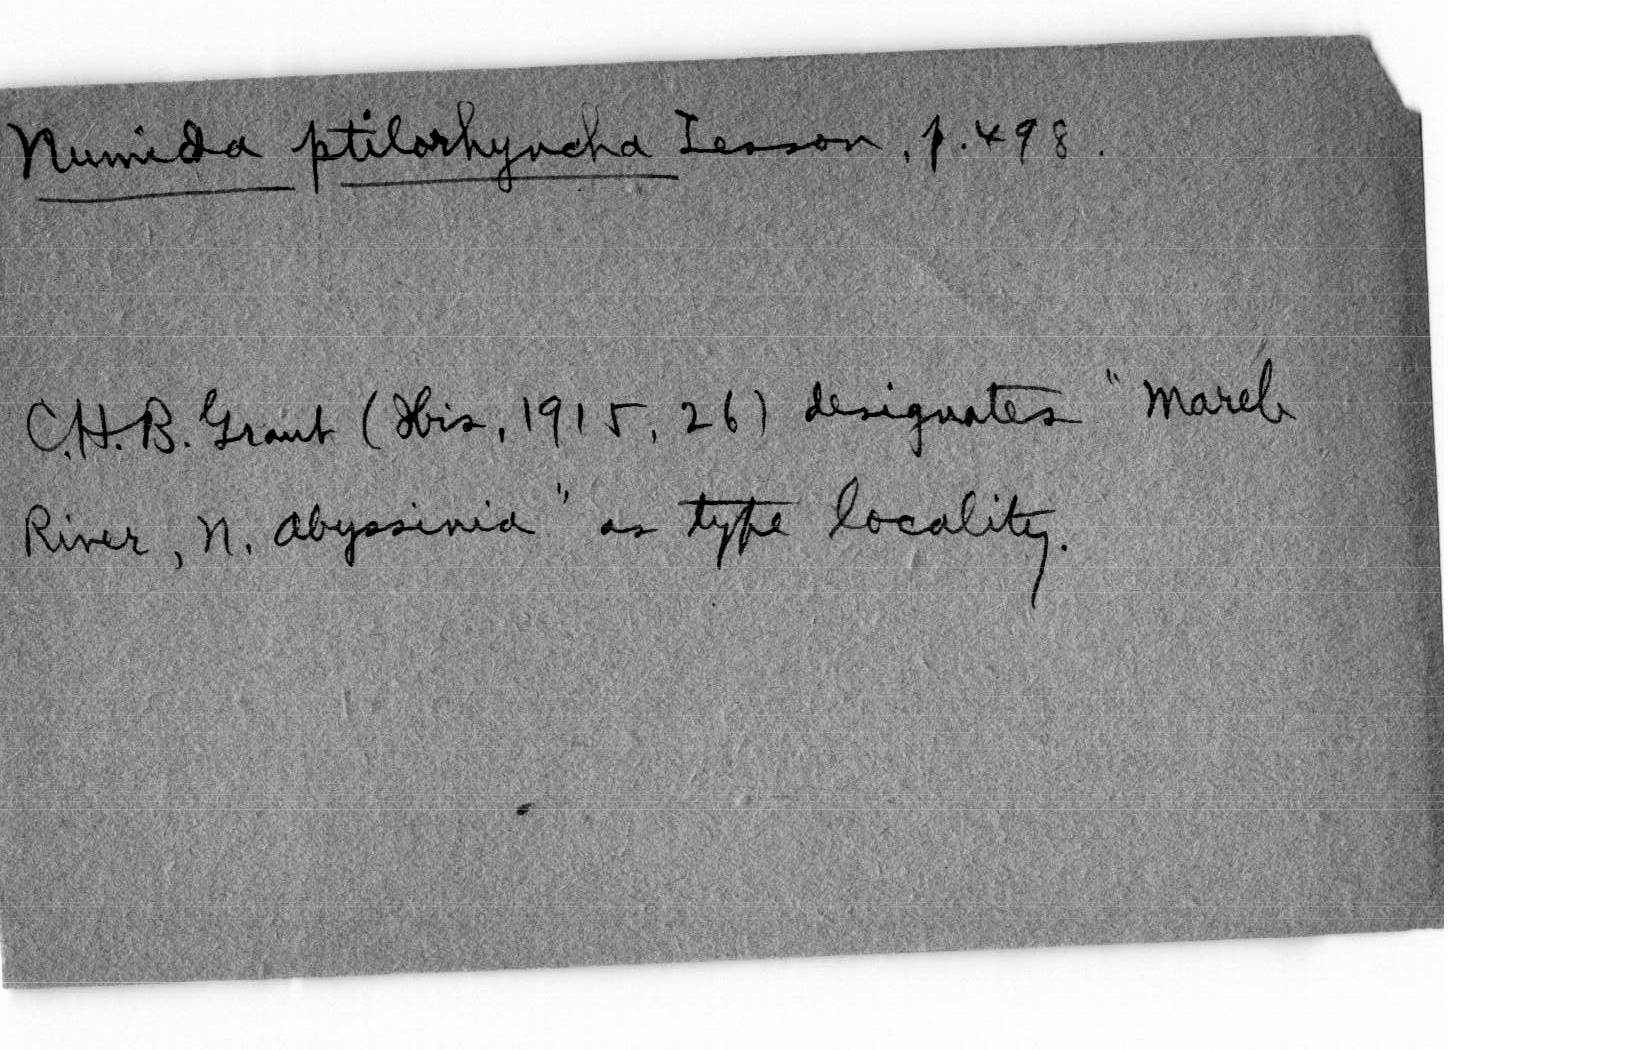 Numida ptilorhyncha Lesson, p. 498.
C.H.B. Grant (Ibis, 1915, 26) designates "Mareb
River, N. Abyssinia" as type locality.